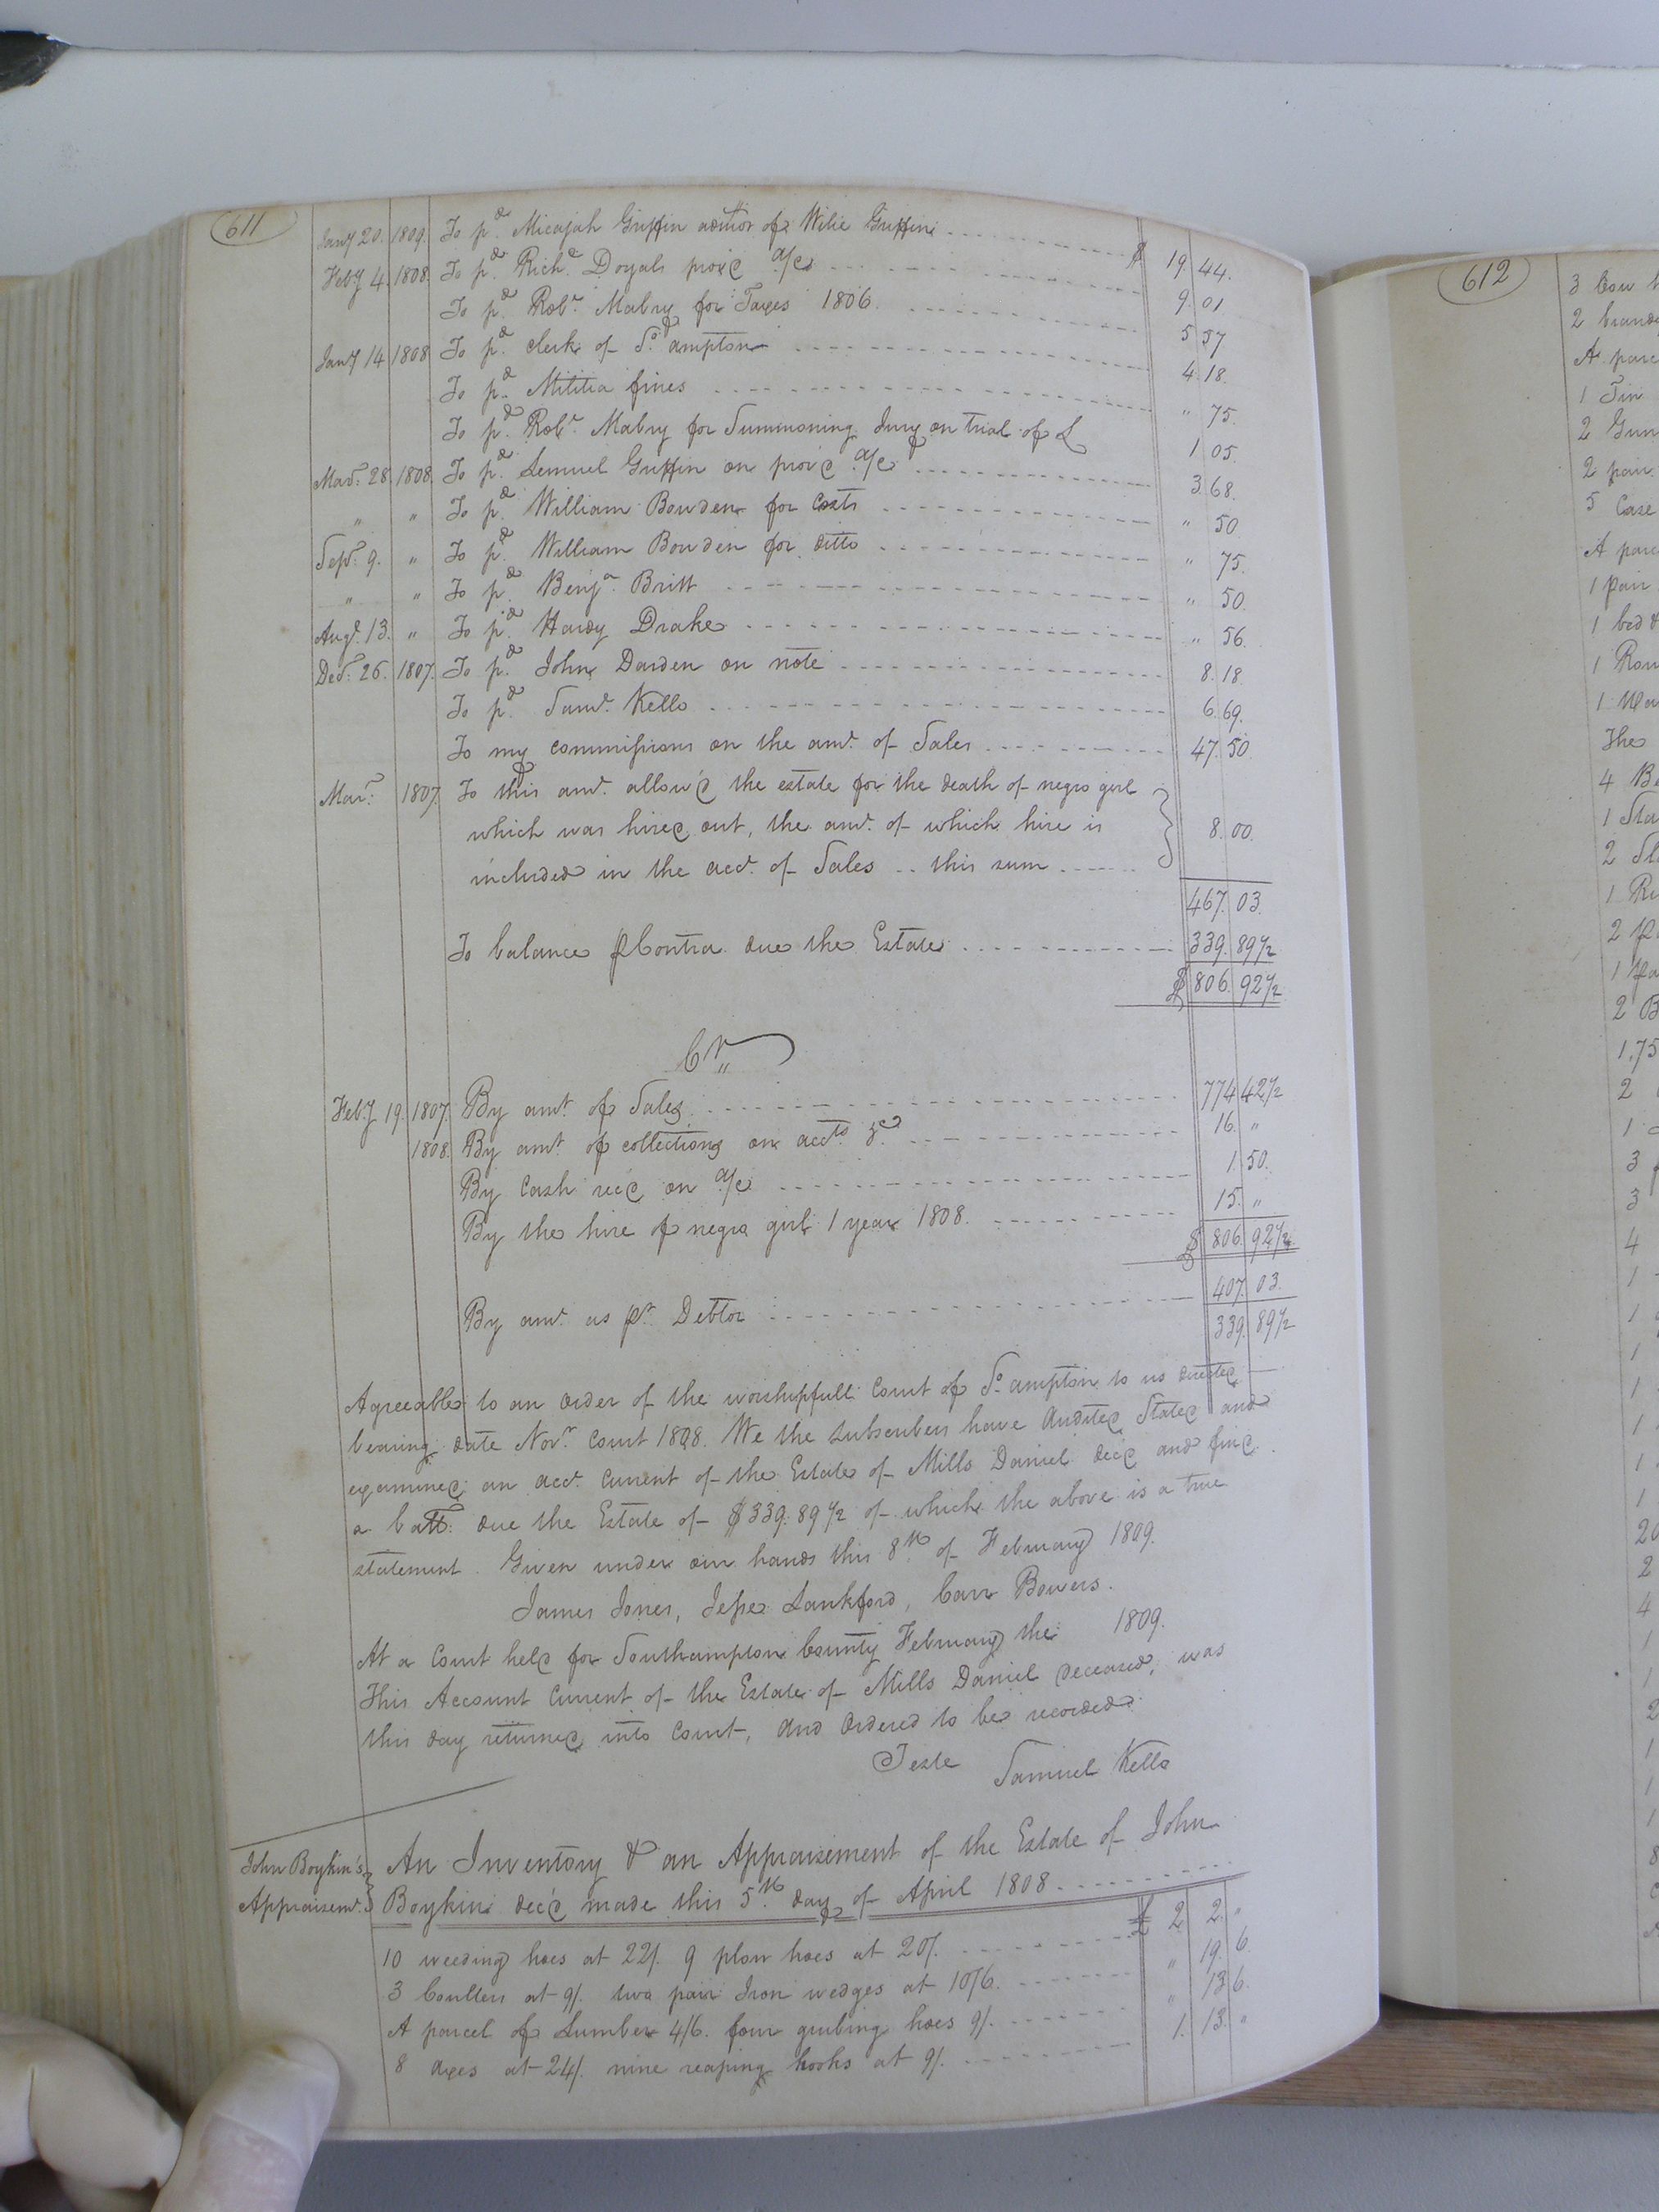 611
Jany 20. 1809. To pd. Micajah Griffin admor of Wilie Griffin $ 19 44.
Feby 4. 1808. To pd. Richd. Doyals prov'd a/c 9. 01
To pd. Robt. Mabry for Taxes 1806. 5 57
Jany 14 1808 To pd. clerk of So. ampton 4. 18.
To pd. Militia fines " 75.
To pd. Robt. Mabry for Summoning Jury on trial of L 1 05.
Mar. 28. 1808. To pd. Lemuel Griffin on prov'd a/c 3. 68.
" " To pd. William Bowden for Costs " 50
Sepr. 9. " To pd. William Bowden for ditto " 75.
" " To pd. Benja. Britt " 50.
Augt. 13. " To pd. Hardy Drake " 56.
Decr. 26. 1807. To pd. John Darden on note 8. 18.
To pd. Saml. Kello 6. 69.
To my commissions on the amt. of Sales 47. 50.
Mar. 1807. To this amt. allow'd the estate for the death of negro girl
which was hired out, the amt. of which hire is 8. 00.
included in the acct. of Sales .. this sum
467. 03.
To balance p Contra due the Estate 339. 89 1/2
$ 806. 92 1/2
Cr.
Feby 19. 1807. By amt of Sales 774 42 1/2
1808. By amt of collections on accts. &c 16. "
By Cash rec'd on a/c 1. 50.
By the hire of negro girl 1 year 1808. 15. "
$ 806. 92 1/2
By amt. as pr. Debtor 407. 03.
339. 89 1/2
Agreeable to an order of the worshipfull Court of So. ampton to us directed
bearing date Novr. Court 1808. We the subscribers have Audited Stated and
examined an acct. Current of the Estate of Mills Daniel dec'd and find
a ball: due the Estate of $339. 89 1/2 of which the above is a true
statement. Given under our hands this 8th. of February 1809.
James Jones, Jesse Lankford, Carr Bowers.
At a Court held for Southampton County February the 1809.
This Account Current of the Estate of Mills Daniel deceased, was
this day returned into Court, and Ordered to be recorded.
Teste Samuel Kello
John Boykin's
Appraisemt.
An Inventory & an Appraisement of the Estate of John
Boykin dec'd made this 5th. day of April 1808
10 weeding hoes at 22/. 9 plow hoes at 20/. £ 2 2. "
3 Coulters at 9/. two pair Iron wedges at 10/6. " 19. 6.
A parcel of Lumber 4/6. four grubing hoes 9/. " 13 6.
8 axes at 24/. nine reaping hooks at 9/. 1. 13. "
612
3 Cow
2
A parc
1 Tin
2 Gun
2 pair
5 Case
A parc
1 pair
1 bed &
1
1
The
4
1
2
1
2
1
2 B
1.75
2
1
3
3
4
1
1
1
1
1
1
1
20
2
4
1
1
2
1
1
1
8